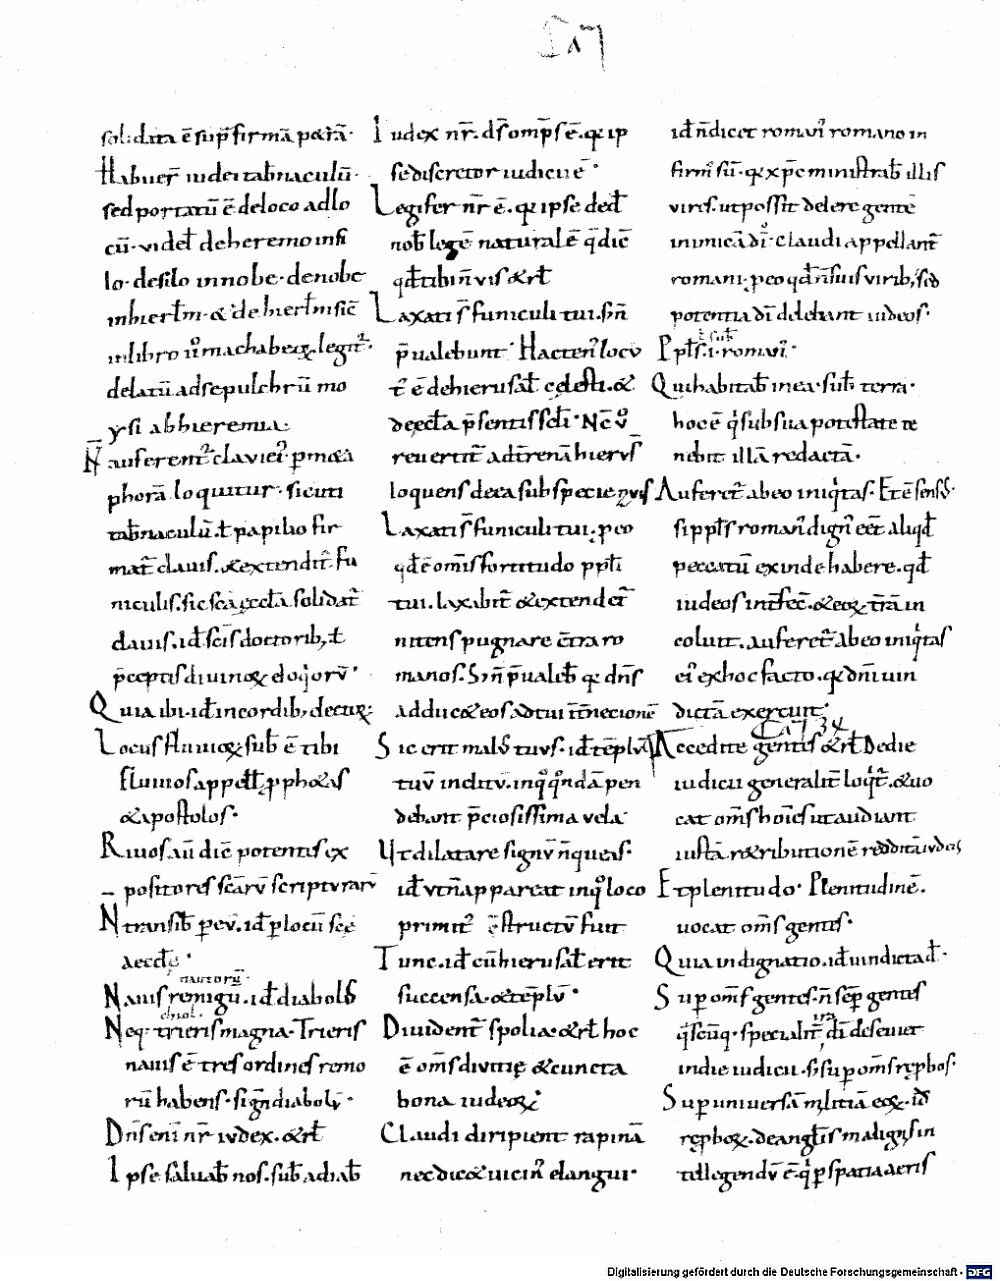 solidata ē sup̄ firmā petrā·
Habuer̄ iudei tab̄naculū·
sed portatū ē deloco adlo
cū· videł de heremo insi
lo· desilo innobe· denobe
inhierłm· & de hierłm sic̄
inlibro machabeoꝝ legit᷑·
delatū adsepulchrū mo
ysi abhieremia·
N̄ auferent᷑ clavi ei᷒· p̄ m&a
phorā loquitur· sicuti
tab̄naculū ł papilio fir
mat᷑ clavis· & extendit᷑ fu
niculis· sic sc̄a eccła solidat᷑
clavis· id̄ sc̄is doctorib; ł
p̄ceptis divinoꝝ eloq́orū·
Quia ibi· id̄ incordib; 
Locus fluvioꝝ sub̄ ē tibi
fluvios appelł pph&as
& apostolos·
Rivos aū dic̄ potentis ex
positores sc̄arū scripturarū
N̄ transib̄ p eū· id̄ p locū sc̄e
aeccłę·
nautorū·
Navis remigū· id̄ diabolus
Neq· trieris magna· Trieris
navis ē tres ordines remo
rū habens· sign̄ diabolū·
Dn̄s eni nr̄ iudex· &rł
Ipse salvab̄ nos· sub̄ adiab̄
Iudex nr̄· ds̄ omp̄s ē· q ip
se discretor iudicii ē·
Legifer nr̄ ē· q ipse ded̄
nob̄ legē naturalē q̄ dic̄
qđ tibi n̄ vis &rł
Laxati s̄ funiculi tui· s; n̄
p̄ualebunt· Hacten᷒ locu
t᷒ ē de hierusał celesti· &
de eccła p̄sentis sc̄li· Nc̄ ů
revertit᷑ ad t̄renā hierus̄
loquens de ea sub specie navis
Laxati s̄ funiculi tui· p eo
qđ ē om̄is fortitudo ppłi
tui· laxabit᷑ & extendet᷑
nitens pugnare c̄tra ro
manos· S; n̄ p̄ualeb̄ q dn̄s
adduc& eos ad tui int̄necionē
Sic erit malus tuus· id̄ tēplū
tuū inditū· inq̊ q̊ndā pen
debant p̄ciosissima vela·
Ut dilatare signū n̄queas·
id̄ ut n̄ appareat inq̊ loco
primit᷒ c̄structū fuit
Tunc· id̄ cū hierusał erit
succensa· & tēplū·
Dividenť spolia· &rł hoc
ē om̄s divitię & cuncta
bona iudeoꝝ·
Claudi diripient rapinā
nec dic& vicin᷒ elangui·
id̄ n̄ dicet roman᷒ romano in
firm᷒ sū· q xp̄c ministrab̄ illis
vires· ut possit delere gentē
inimicā dī· claudi appellant᷑
romani· p eo qđ n̄ suis virib; sed
potentia dī delebant iudeos·
Ppłs· i· roman᷒·
Qui habitab̄ in ea· sub̄ terra·
hoc ē q́ sub sua potestate te
nebit illā redactā·
Aufer&᷑ ab eo iniq́tas· Et ē sensus·
si ppłs roman᷒ dign᷒ e&᷑ aliqđ
peccatū exinde habere· qđ
iudeos int̄fec̄· & eoꝝ t̄rā in
coluit· aufer&᷑ ab eo iniq́tas
ei᷒ ex hoc facto· q dn̄i vin
dictā exercuit·
Cap 34
Accedite gentes &rł De die
iudicii generalit᷑ loq́t᷑· & vo
cat om̄s hoīes ut audiant
iustā r&ributionē redditā iudeis
Et plenitudo· Plenitudinē·
vocat om̄s gentes·
Quia indignatio· id̄ uindicta dī·
Sup om̄s gentes· n̄ sēp gentes
q̄scūq· specialit᷑ ira dī deseviet
in die iudicii· s; sup om̄s rępbos·
Sup universā militiā eoꝝ· id̄
rępboꝝ· de angłis malignis in
tellegendū ē· q́ p spatia aeris
Digitalisierung gefördert durch die Deutsche Forschungsgemeinschaft - DFG